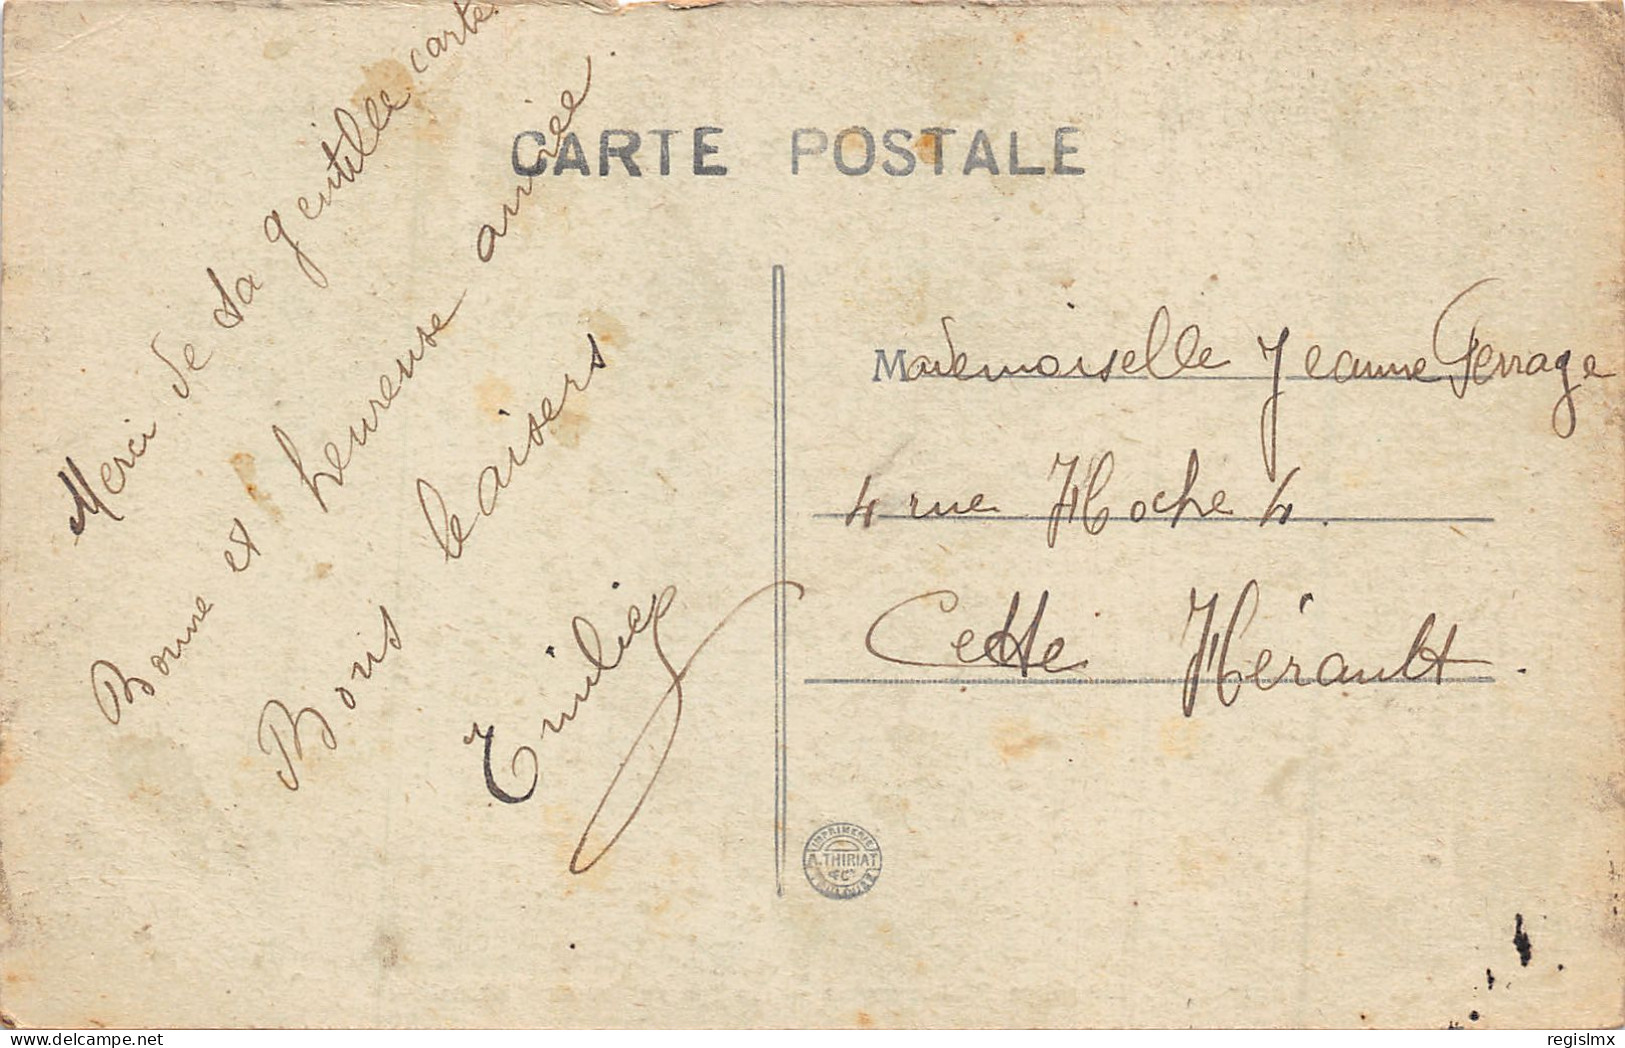 CARTE POSTALE
Merci de ta gentille carte.
Bonne et heureuse année.
Bons baisers
Emilie
Mademoiselle Jeanne Ferrage
4 rue Hoche 4.
Cette Hérault.
IMPRIMERIE
A. THIRIAT
& Cie
TOULOUSE
delcampe.net
regislmx